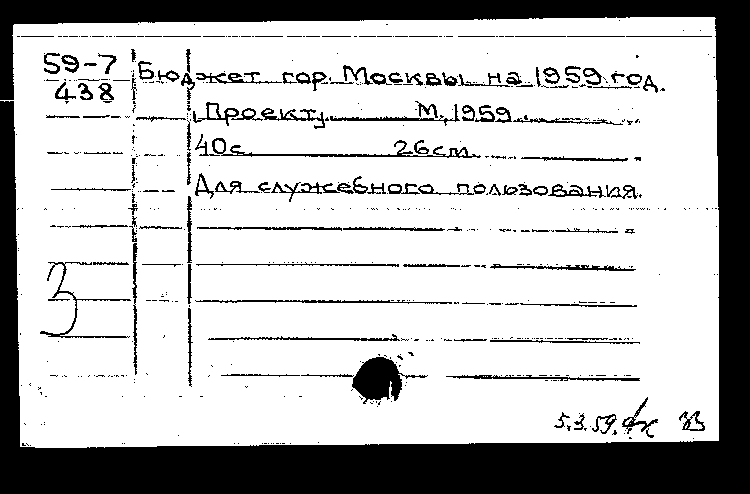 59-7
438
Бюджет гор. Москвы на 1959 год.
[Проект]. М., 1959.
40с. 26см.
Для служебного пользования.
3
5.3.59.